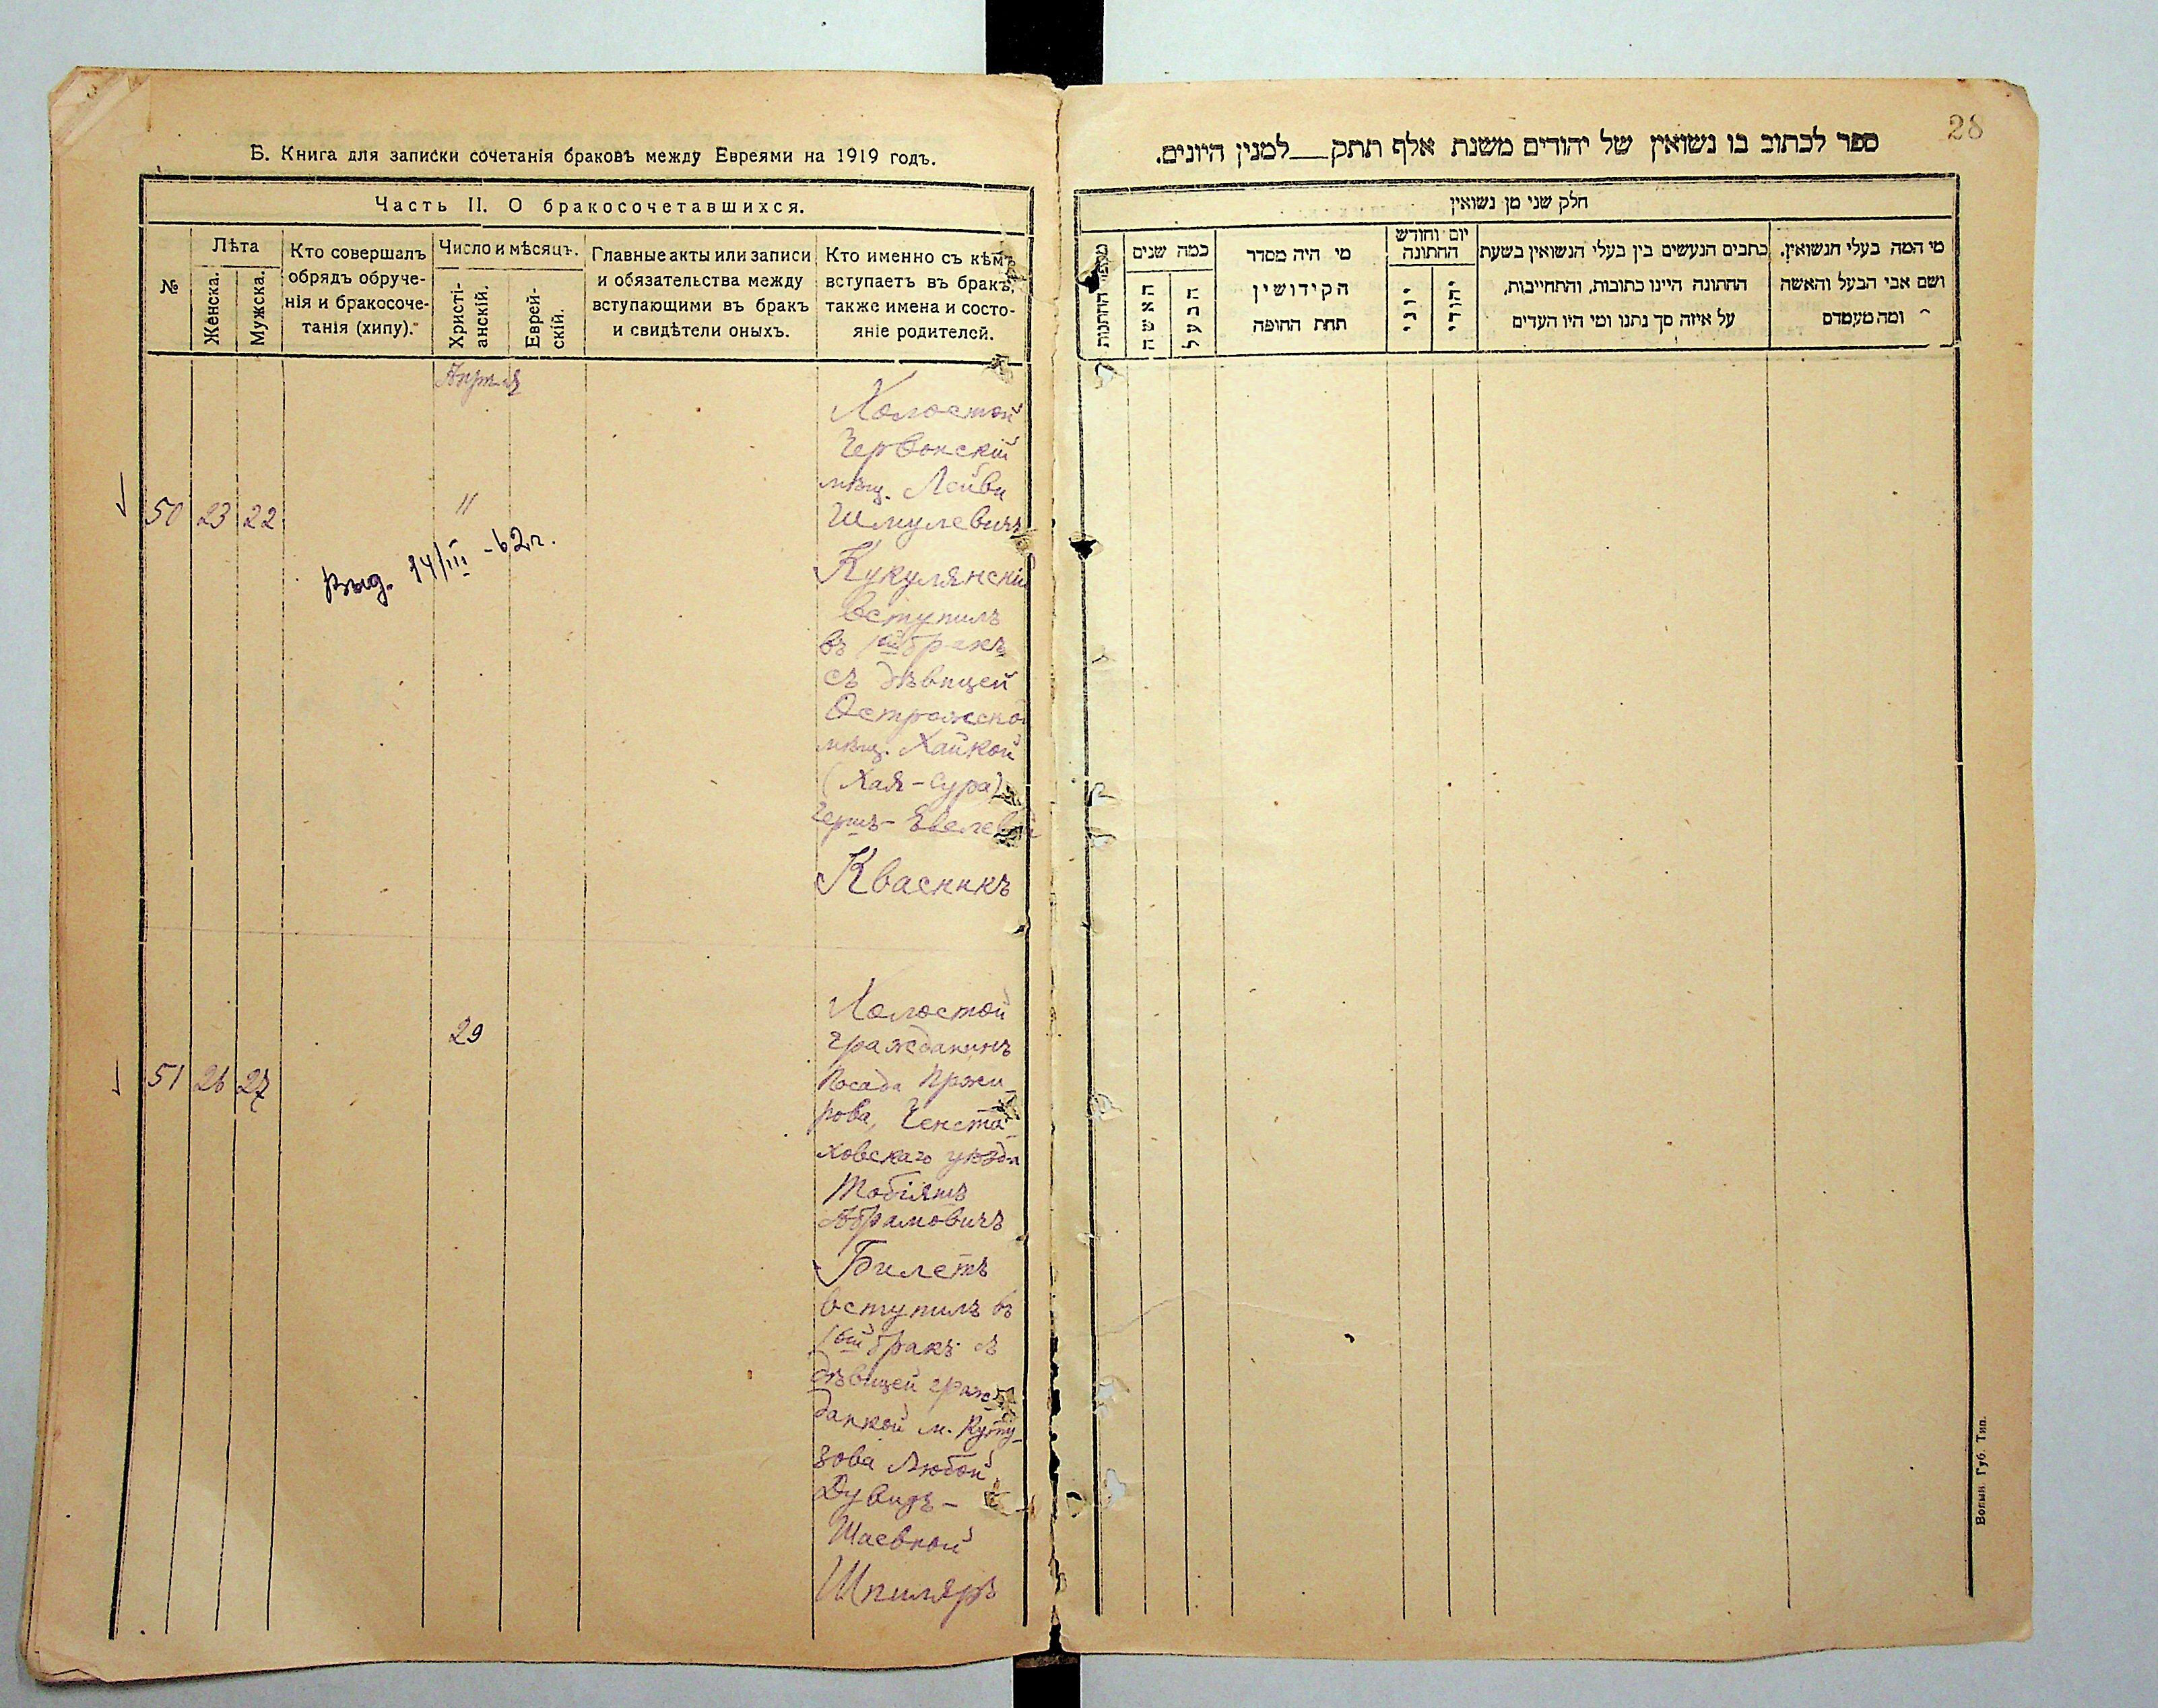 Б. Книга для записки сочетанія браковъ между Евреями на 1919 годъ.
Часть II. О бракосочетавшихся.
№
Лѣта
Женска.
Мужска.
Кто совершалъ
обрядъ обруче-
нія и бракосоче-
танія (хипу).
Число и мѣсяцъ.
Христі-
анскій.
Еврей-
скій.
Главные акты или записи
и обязательства между
вступающими въ бракъ
и свидѣтели оныхъ.
Кто именно съ кѣмъ
вступаетъ въ бракъ,
также имена и состо-
яніе родителей.
Апрѣля
50 23 22
11
Выд. 14/III -62г.
Холостой
Червонскій
мѣщ. Лейба
Шмулевичъ
Кукулянскій
вступилъ
въ 1ый бракъ
съ дѣвицей
Острожской
мѣщ. Хайкой
(Хая-Сура)
Гершъ-Евелевой
Квасникъ
51 26 27
29
Холостой
гражданинъ
Посада Пржи-
рова, Ченсто-
ховскаго уѣзда
Тобіяшъ
Абрамовичъ
Билетъ
вступилъ въ
1ый бракъ съ
дѣвицей граж-
данкой м. Куту-
зова Любой
Дувидъ-
Шаевной
Шпиляръ
28
ספר לכתוב בו נשואין של יהודים משנת אלף תתק___למנין היונים.
חלק שני מן נשואין
כמה שנים
האשה
הבעל
מי היה מסדר
הקידושין
תחת החופה
יום וחודש
החתונה
יוני
יהודי
כתבים הנעשים בין בעלי הנשואין בשעת
החתונה היינו כתובות, והתחייבות,
על איזה סך נתנו ומי היו העדים
מי המה בעלי הנשואין.
ושם אבי הבעל והאשה
ומה מעמדם
Волын. Губ. Тип.